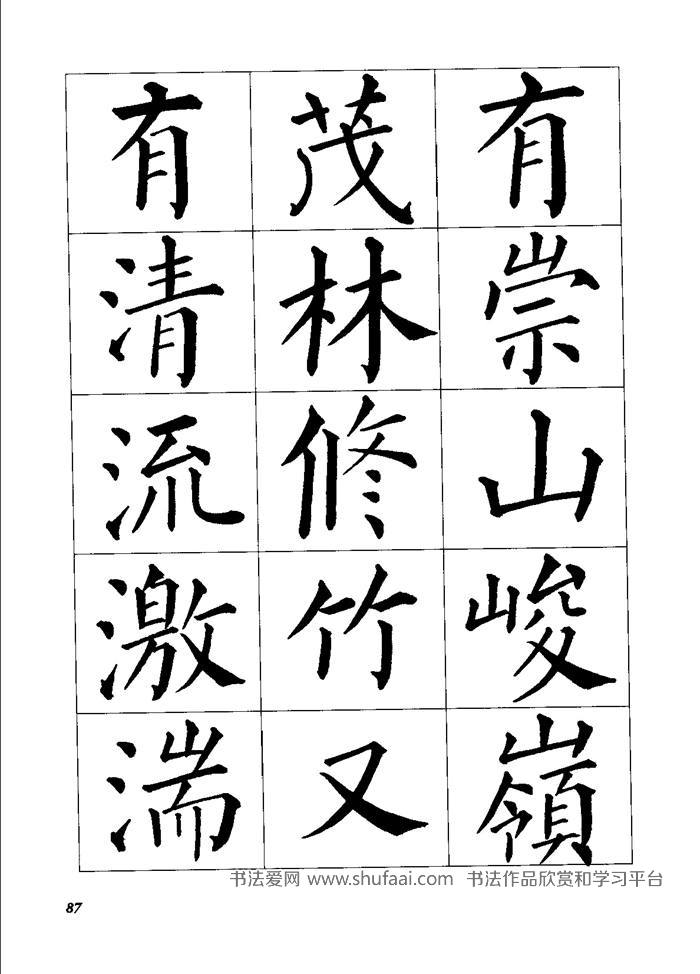 有崇山峻嶺
茂林修竹又
有清流激湍
书法爱网 www.shufaai.com 书法作品欣赏和学习平台
87